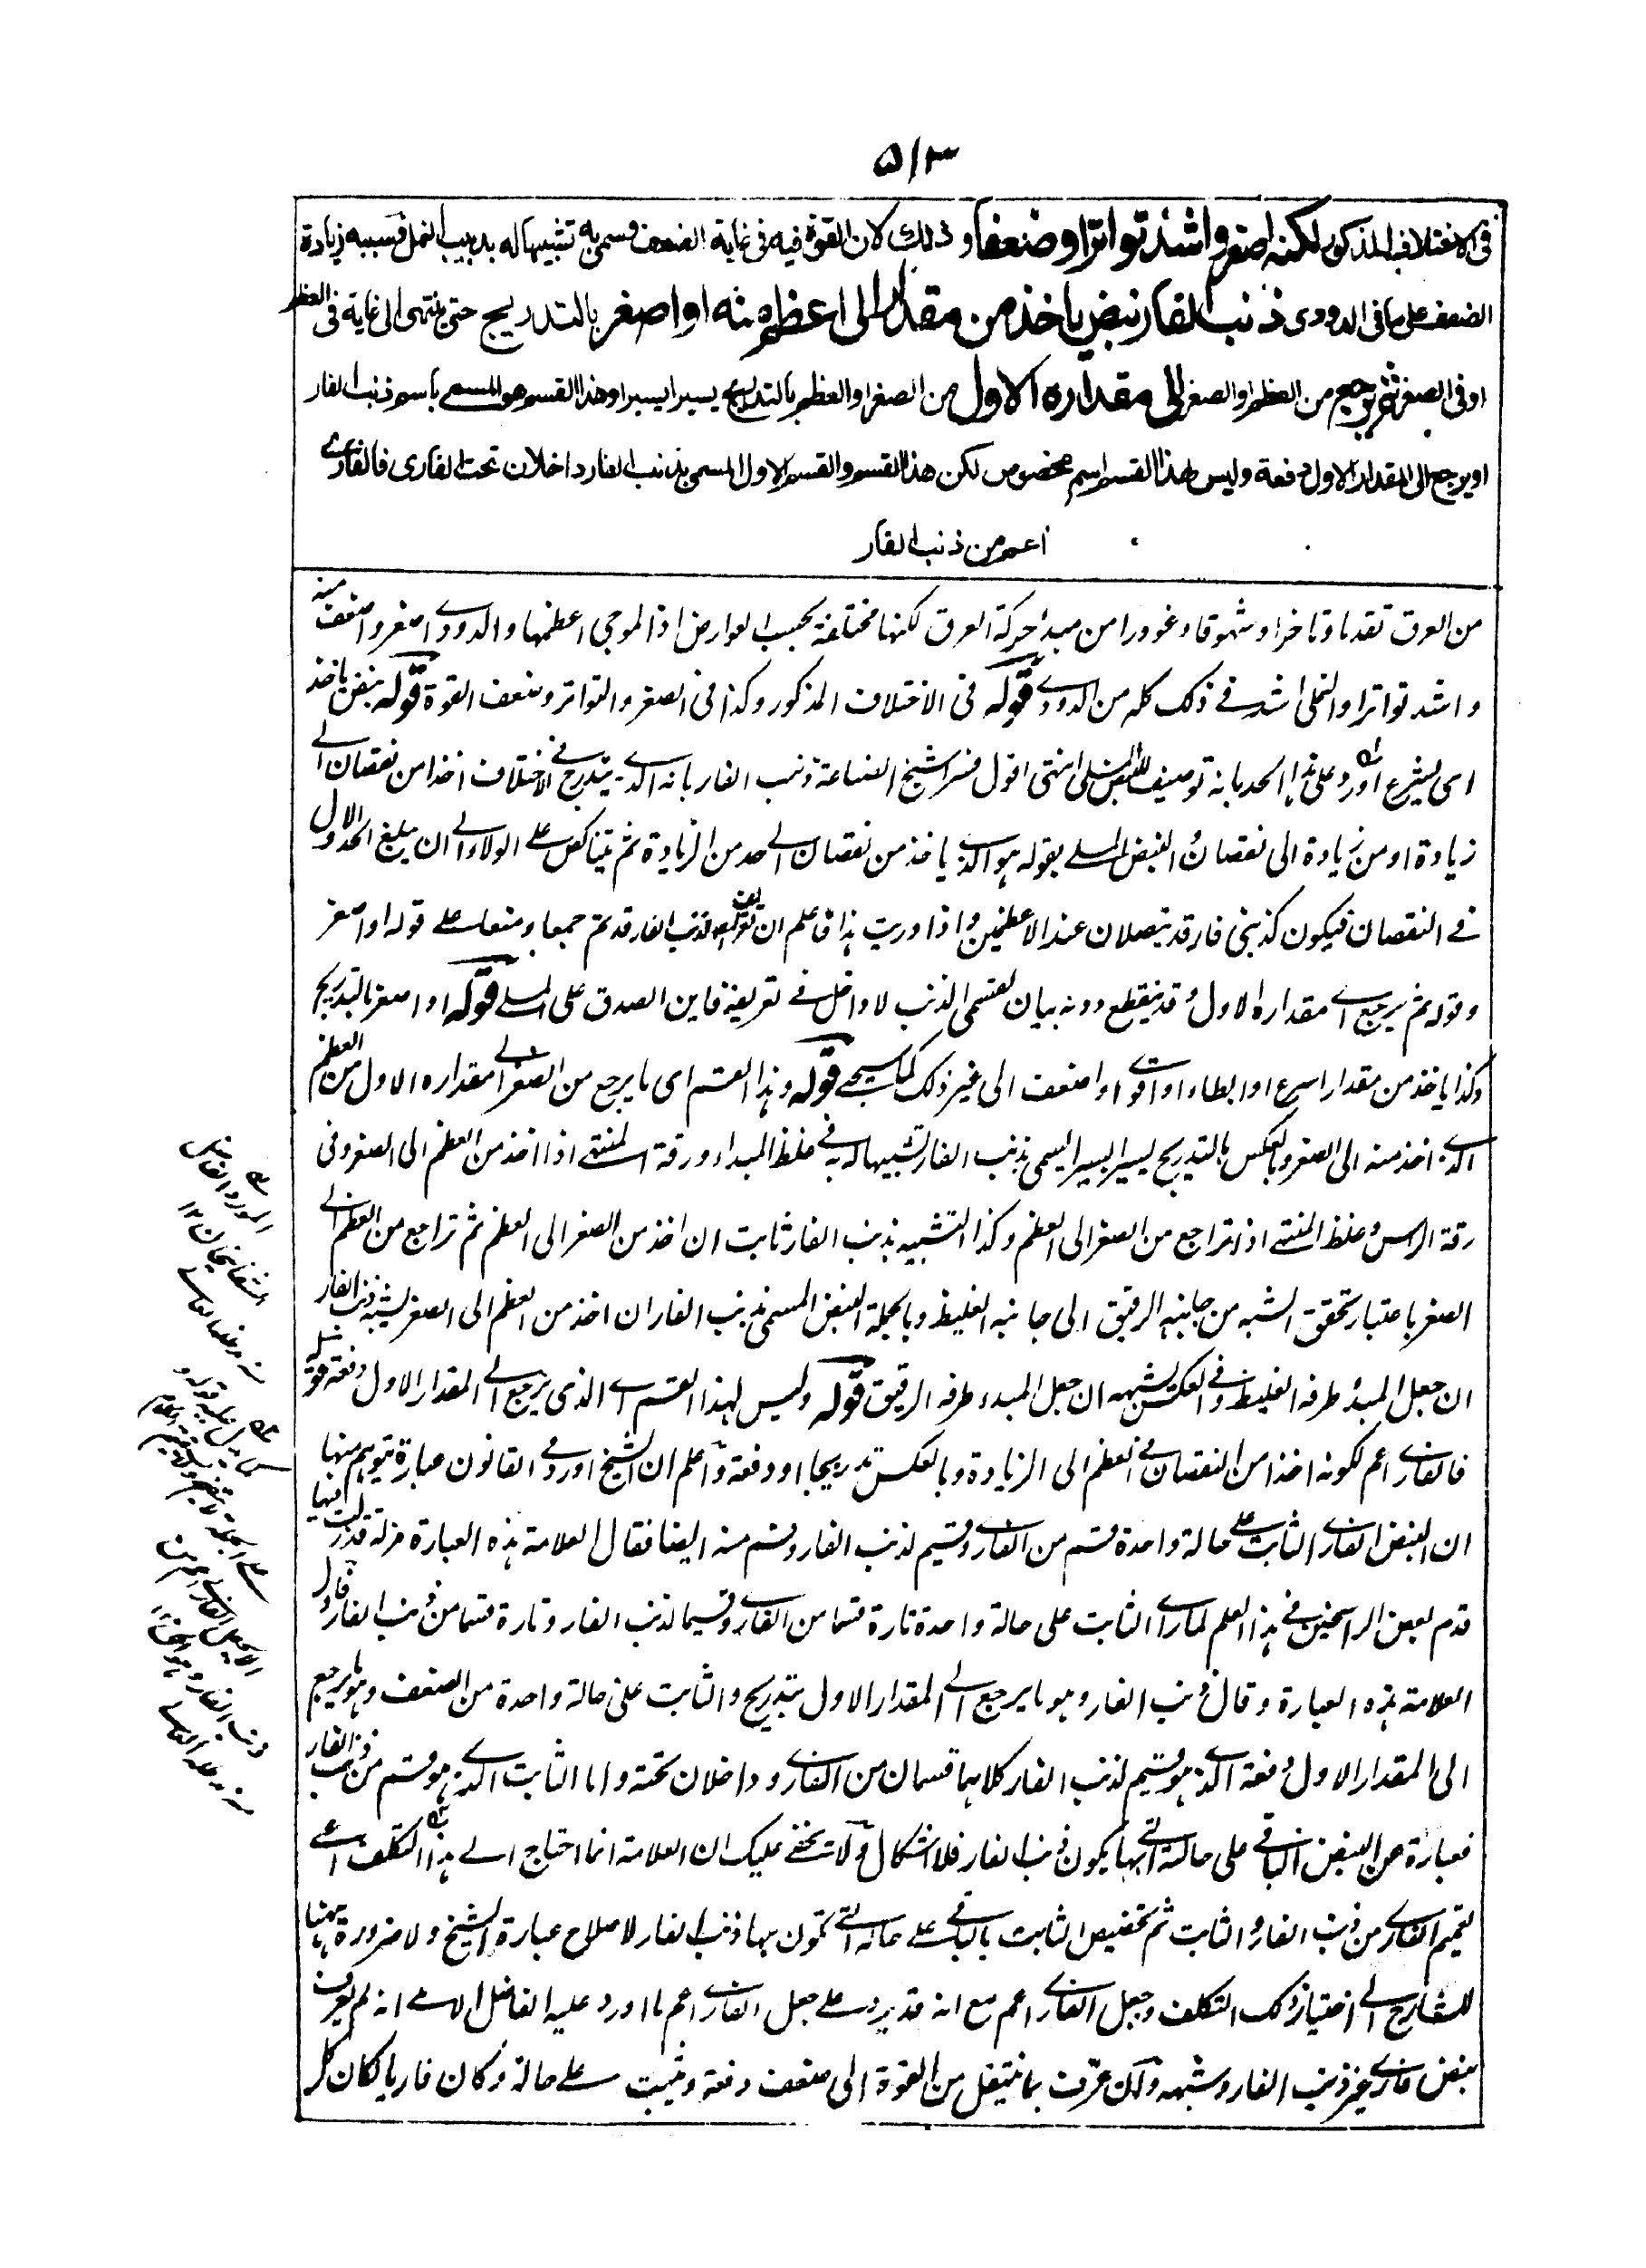 ٥١٣
فى الاختلاف المذكور لكنه اصغر واشد تواترا وضعفا وذلك لان القوة فيه فى غاية الضعف وسمى به تشبيها له بدبيب النمل وسببه زيادة
الضعف على ما فى الدودى ذنب الفار نبض ياخذ من مقدار الى اعظم منه او اصغر بالتدريج حتى ينتهى الى غاية فى العظم
او فى الصغر ثم يرجع من العظم او الصغر الى مقداره الاول من الصغر او العظم بالتدريج يسيرا يسيرا وهذا القسم هو المسمى باسم ذنب الفار
او يرجع الى المقدار الاول دفعة وليس لهذا القسم اسم مخصوص لكن هذا القسم والقسم الاول المسمى بذنب الفار داخلان تحت الفارى فالفارى
اعم من ذنب الفار
من العرق تقدما وتاخرا وشهوقا وغورا من مبدأ حركة العرق لكنها مختلفة بحسب العوارض اذ الموجى اعظمها والدودى اصغر واضعف منه
واشد تواترا والنملى اشد فى ذلك كله من الدودى قوله فى الاختلاف المذكور وكذا فى الصغر والتواتر وضعف القوة قوله نبض ياخذ
اى يشرع اورد على هذا الحد بانه توصيف للنبض المسلى انتهى اقول فسر الشيخ الصناعة ذنب الفار بانه الذى يتدرج فى الاختلاف اخذا من نقصان الى
زيادة او من زيادة الى نقصان والنبض المسلى بقوله هو الذى ياخذ من نقصان الى حد من الزيادة ثم يتناكص على الولاء الى ان يبلغ الحد الاول
فى النقصان فيكون كذنبى فار قد يتصلان عند الاعظمين واذا دريت هذا فاعلم ان تعريف المص لذنب الفار قد تم جمعا ومنعا على قوله او اصغر
وقوله ثم يرجع الى مقداره الاول وقد ينقطع دونه بيان لقسمى الذنب لا داخل فى تعريفه فاين الصدق على المسلى قوله او اصغر بالتدريج
وكذا ياخذ من مقدار اسرع او ابطاء او اقوى او اضعف الى غير ذلك كما سيجئ قوله وهذا القسم اى ما يرجع من الصغر الى مقداره الاول من العظم
الذى اخذ منه الى الصغر وبالعكس بالتدريج يسيرا يسيرا يسمى بذنب الفار تشبيها له به فى غلظ المبداء ورقة المنتهى اذا اخذ من العظم الى الصغر وفى
رقة الراس وغلظ المنتهى اذا تراجع من الصغر الى العظم وكذا التشبيه بذنب الفار ثابت ان اخذ من الصغر الى العظم ثم تراجع من العظم الى
الصغر باعتبار تحقق الشبه من جانبه الرقيق الى جانبه الغليظ وبالجملة النبض المسمى بذنب الفار ان اخذ من العظم الى الصغر يشبه ذنب الفار
ان جعل المبدء طرفه الغليظ وفى العكس يشبهه ان جعل المبدء طرفه الرقيق قوله وليس لهذا القسم اى الذى يرجع الى المقدار الاول دفعة قوله
فالفارى اعم لكونه اخذا من النقصان فى العظم الى الزيادة وبالعكس تدريجا او دفعة واعلم ان الشيخ اورد فى القانون عبارة يتوهم منها
ان النبض الفارى الثابت على حالة واحدة قسم من الفارى وقسيم لذنب الفار وقسم منه ايضا فقال العلامة هذه العبارة مزلة قد زلت فيها
قدم بعض الراسخين فى هذا العلم لما راى الثابت على حالة واحدة تارة قسما من الفارى وقسيما لذنب الفار وتارة قسما من ذنب الفار واول
العلامة هذه العبارة وقال ذنب الفار وهو ما يرجع الى المقدار الاول بتدريج والثابت على حالة واحدة من الضعف وهو ما يرجع
الى المقدار الاول دفعة الذى هو قسيم لذنب الفار كلاهما قسمان من الفارى وداخلان تحته واما الثابت الذى هو قسم من ذنب الفار
فعبارة عن النبض الباقى على حالته التى بها يكون ذنب الفار فلا اشكال ولا يخفى عليك ان العلامة انما احتاج الى هذا التكلف اعنى
تعميم الفارى من ذنب الفار والثابت ثم تخصيص الثابت بالباقى على حالته التى تكون بها ذنب الفار لاصلاح عبارة الشيخ ولا ضرورة ههنا
للشارح الى اختيار ذلك التكلف وجعل الفارى اعم مع انه قد يرد على جعل الفارى اعم ما اورد عليه الفاضل انه لم يعرف
نبض فارى غير ذنب الفار وشبهه ولكن عرف بما ينتقل من القوة الى ضعف دفعة ويثبت على حالة وكان فاريا لكان كل
المورد الفاضل